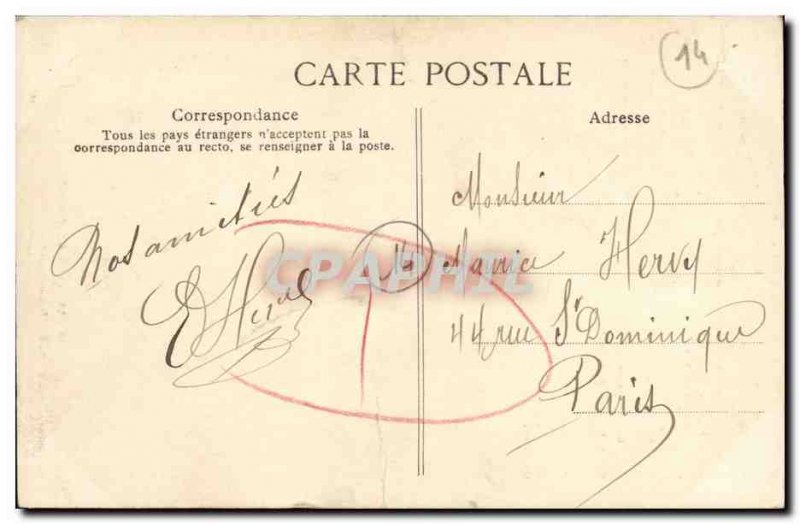 14
CARTE POSTALE
Correspondance
Tous les pays étrangers n'acceptent pas la
correspondance au recto, se renseigner à la poste.
Nos amitiés
Adresse
Monsieur
Maurice Hervy
44 rue St Dominique
Paris
CPAPHIL